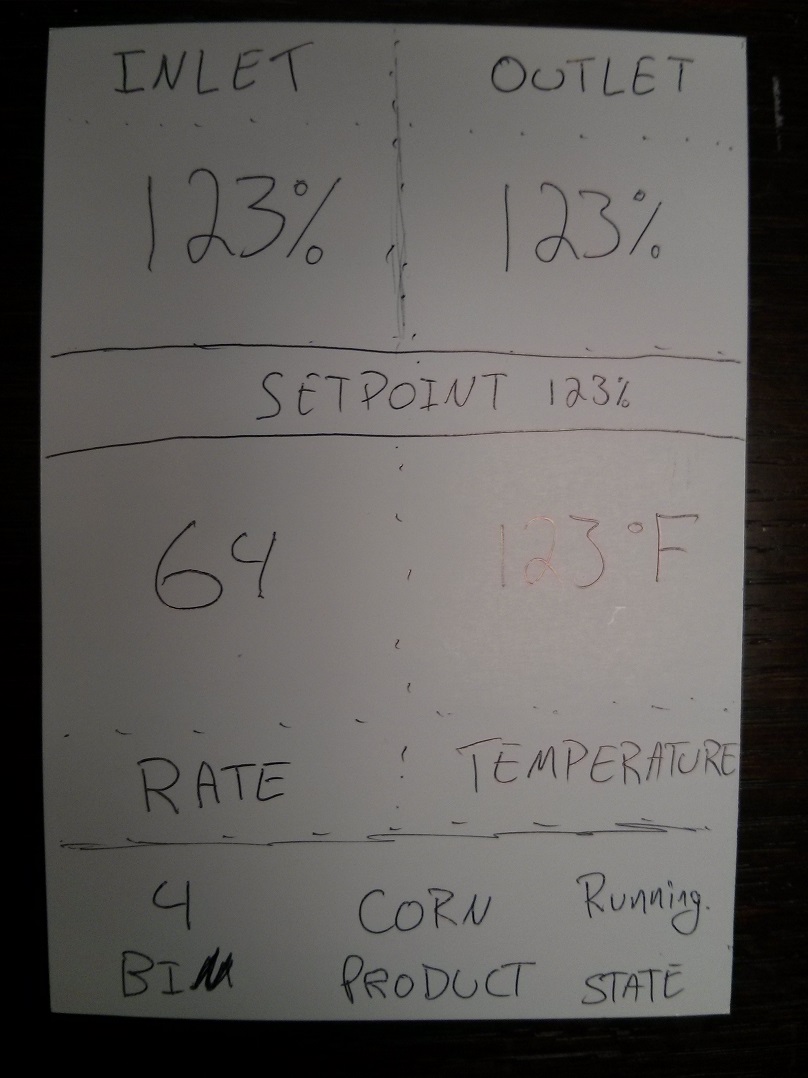 INLET OUTLET
123% 123%
SETPOINT 123%
64 123°F
RATE TEMPERATURE
4 CORN Running.
BIN PRODUCT STATE